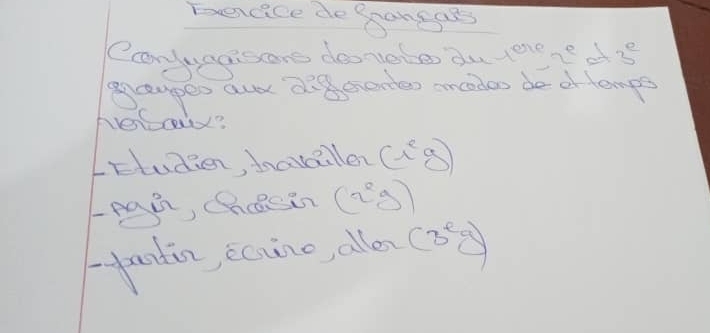 Exercice de français
Conjugaisons des verbes du 1ere 2e et 3e
groupes aux différentes modes de et temps
verbaux:
- Etudier, travailler (1e g)
- Agir, choisir (2e g)
- partir, écrire, aller (3e g)